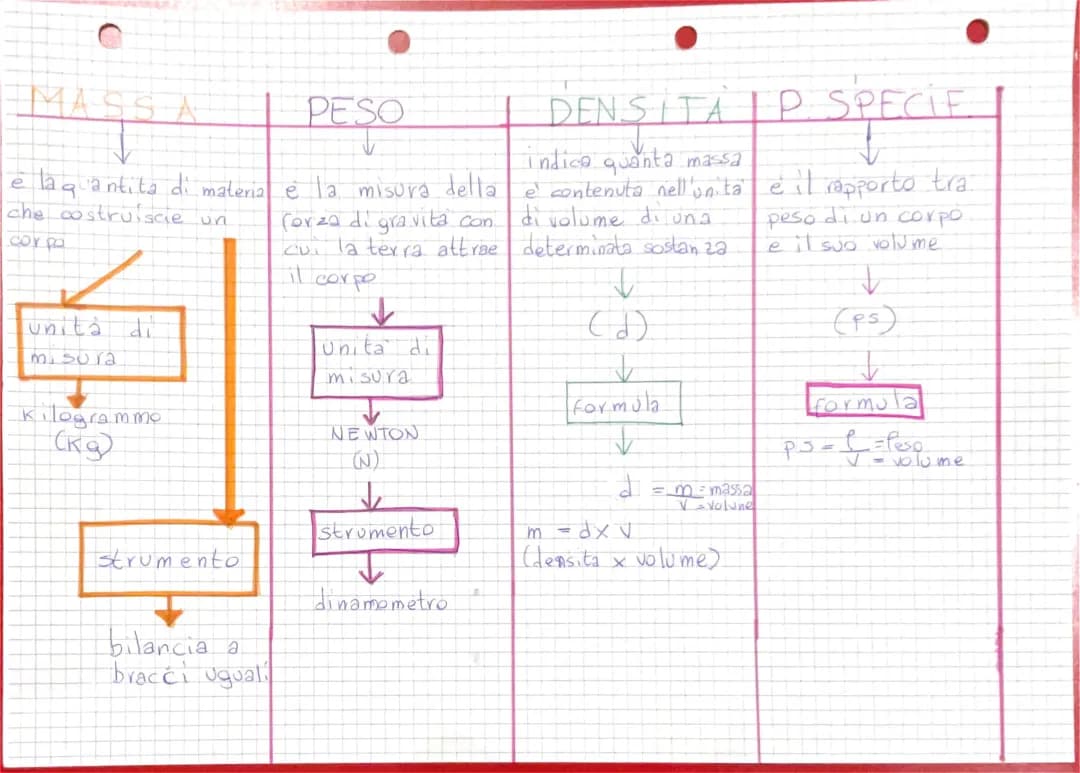 MASSA
è la quantità di materia
che costruiscie un
corpo
unità di
misura
Kilogrammo
(Kg)
strumento
bilancia a
bracci uguali
PESO
è la misura della
forza di gravità con
cui la terra attrae
il corpo
unità di
misura
NEWTON
(N)
strumento
dinamometro
DENSITÀ
indica quanta massa
è contenuta nell'unità
di volume di una
determinata sostanza
(d)
formula
d = m = massa
V = volume
m = d x V
(densità x volume)
P. SPECIF.
è il rapporto tra
peso di un corpo
e il suo volume
(ps)
formula
ps = P = Peso
V = volume